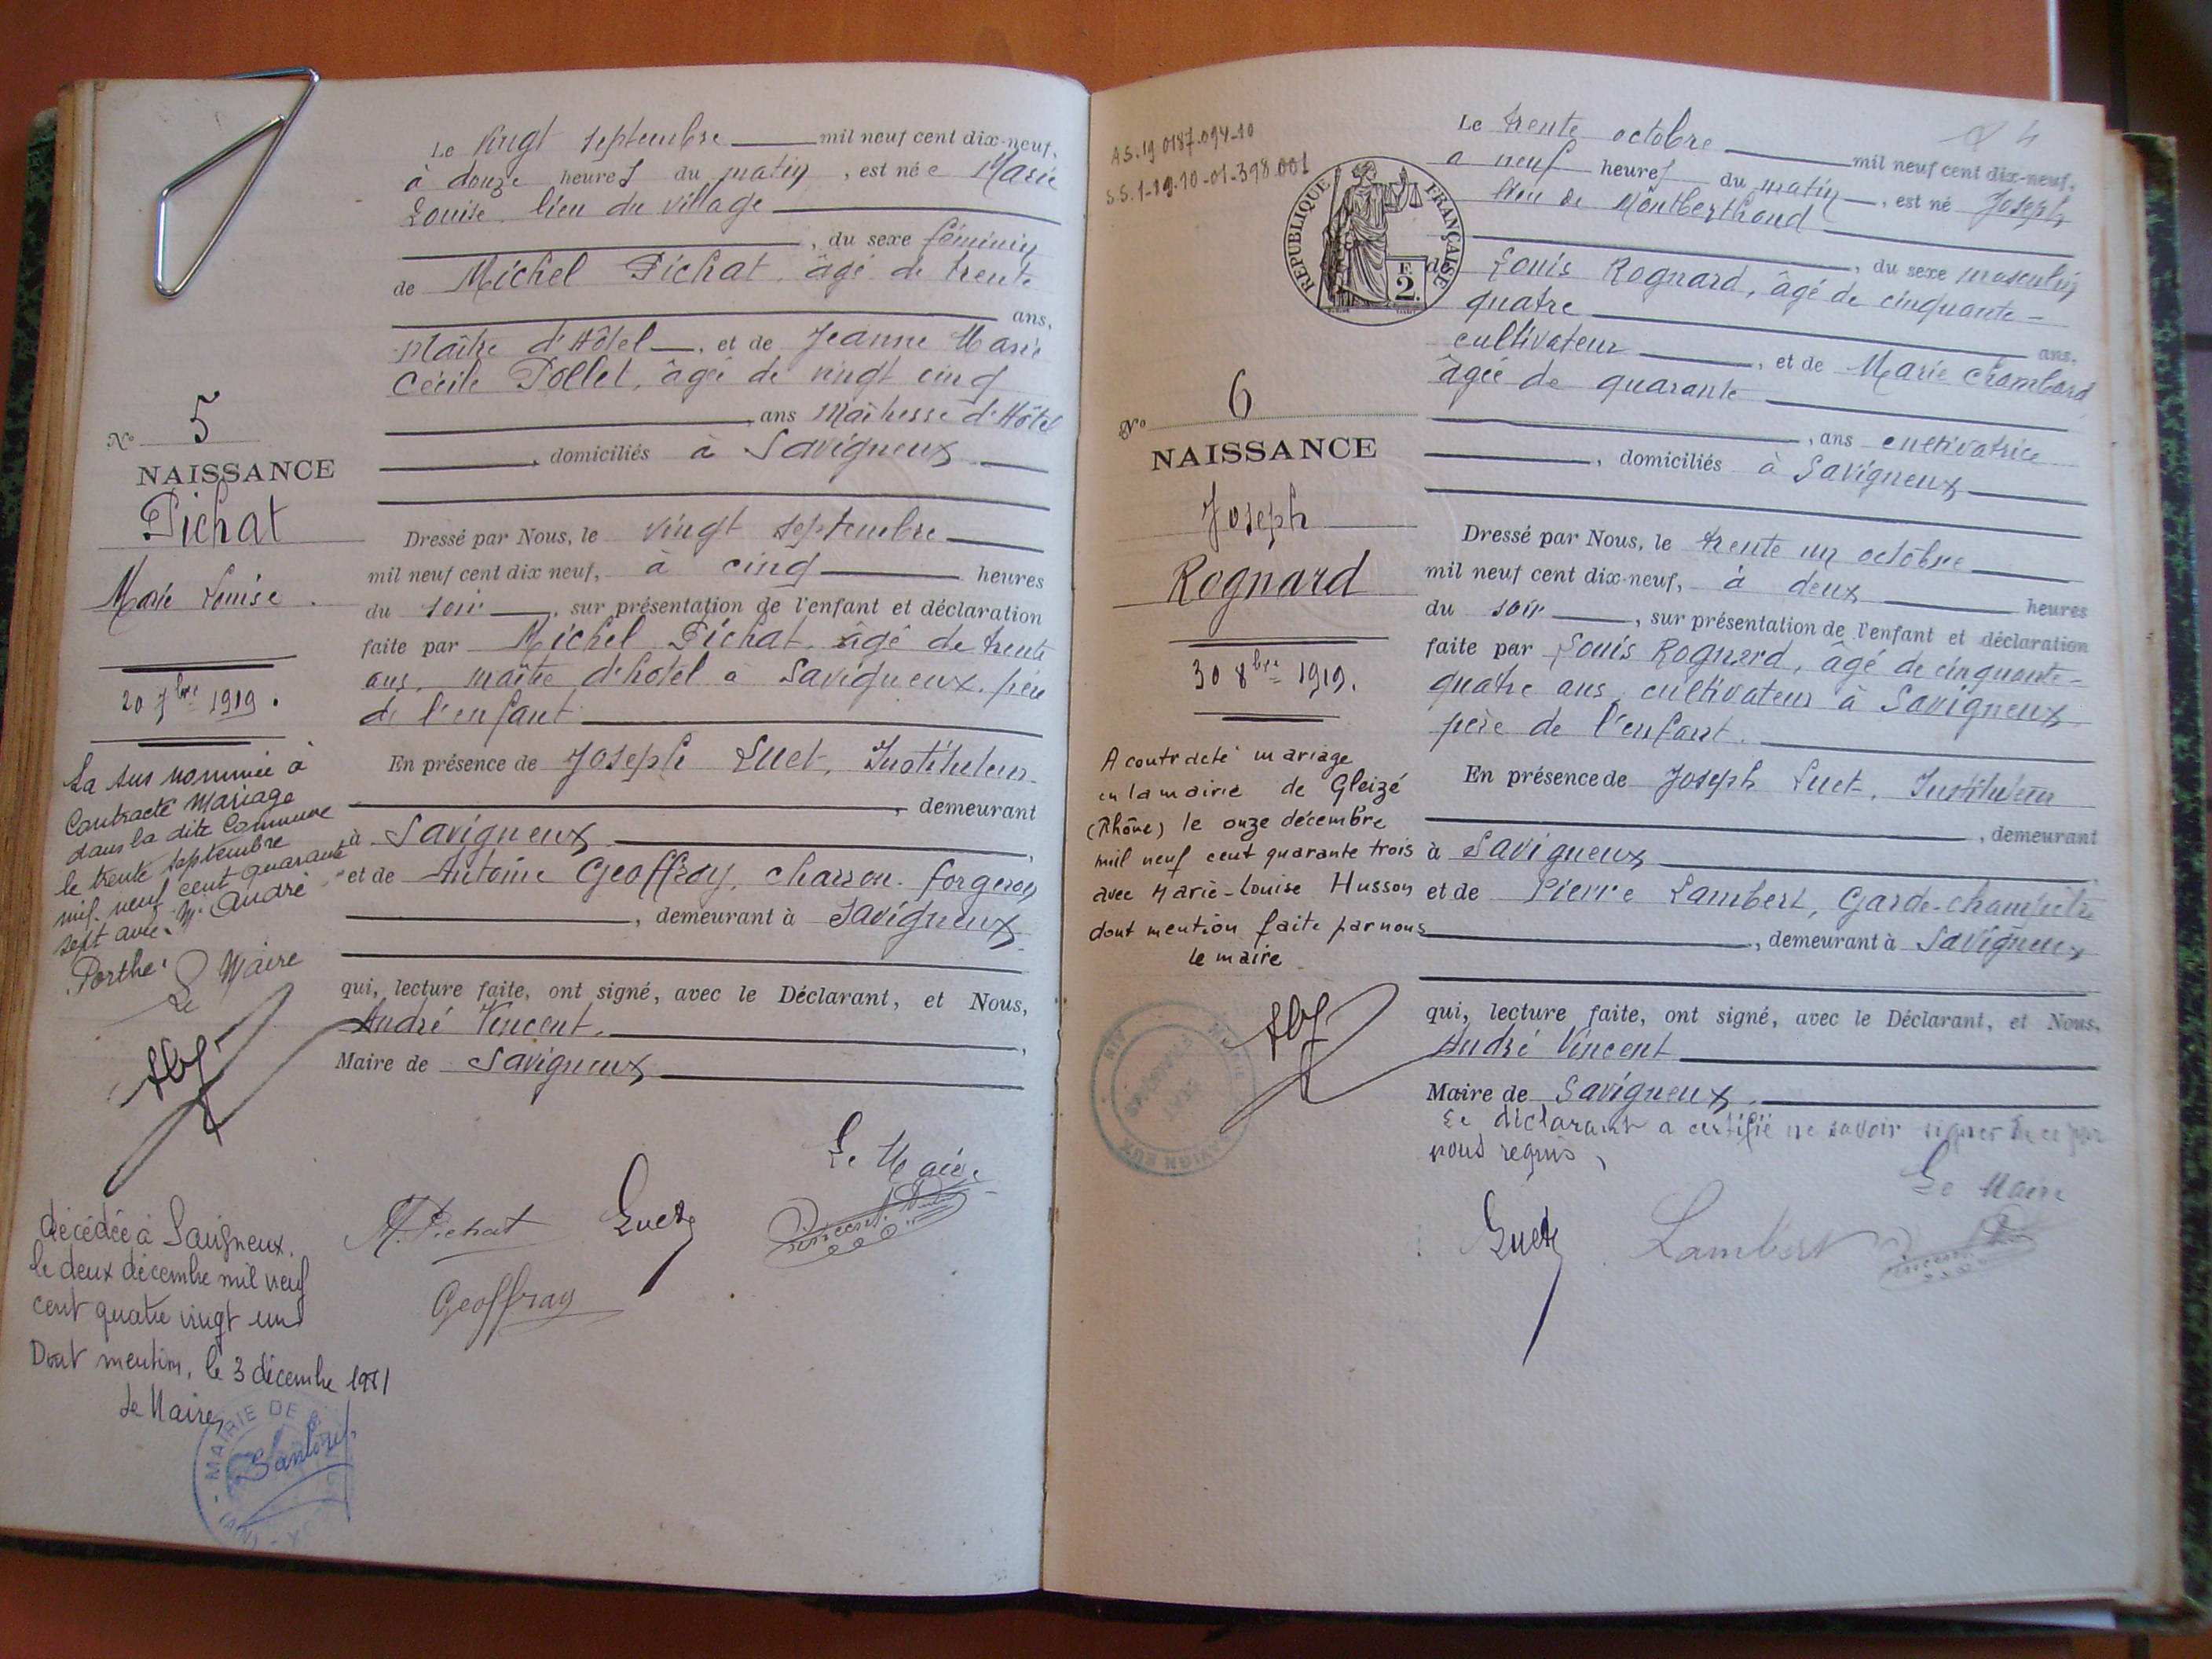 Le vingt septembre mil neuf cent dix-neuf,
à douze heures du matin, est née Marie
Louise lieu du village
, du sexe féminin
de Michel Pichat, âgé de trente
ans,
Maître d'Hôtel, et de Jeanne Marie
Cécile Pollet, âgée de vingt cinq
ans Maîtresse d'Hôtel
, domiciliés à Savigneux
N° 5
NAISSANCE
Pichat
Marie Louise
20 7bre 1919.
Dressé par Nous, le vingt septembre
mil neuf cent dix neuf, à cinq heures
du soir, sur présentation de l'enfant et déclaration
faite par Michel Pichat, âgé de trente
ans, maître d'hôtel à Savigneux, père
de l'enfant
En présence de Joseph Luet, Instituteur
, demeurant
à Savigneux,
et de Antoine Geoffray, charron-forgeron
, demeurant à Savigneux
qui, lecture faite, ont signé, avec le Déclarant, et Nous,
André Vincent,
Maire de Savigneux
Le Maire
M. Pichat
Luet
Geoffray
La sus nommée à
Contracté Mariage
dans la dite Commune
le trente septembre
mil neuf cent quarante
sept avec M. André
Porthe
Le Maire
décédée à Savigneux
le deux décembre mil neuf
cent quatre vingt un
Dont mention, le 3 décembre 1981
Le Maire
MAIRIE DE
(AIN)
4
A.S.19 0187.094-10
S.S.1-19.10-01-398.001
RÉPUBLIQUE FRANÇAISE
F.
2.
Le trente octobre mil neuf cent dix-neuf,
a neuf heures du matin, est né Joseph
lieu de Montberthoud
, du sexe masculin
de Louis Rognard, âgé de cinquante-
quatre
ans,
cultivateur, et de Marie Chambard
âgée de quarante
, ans cultivatrice
, domiciliés à Savigneux
N° 6
NAISSANCE
Joseph
Rognard
30 8bre 1919.
Dressé par Nous, le trente un octobre
mil neuf cent dix-neuf, à deux heures
du soir, sur présentation de l'enfant et déclaration
faite par Louis Rognard, âgé de cinquante-
quatre ans, cultivateur à Savigneux
père de l'enfant.
En présence de Joseph Luet, Instituteur
, demeurant
à Savigneux
et de Pierre Lambert, Garde-champêtre
, demeurant à Savigneux
qui, lecture faite, ont signé, avec le Déclarant, et Nous,
André Vincent
Maire de Savigneux.
Le déclarant a certifié ne savoir signer de ce par
nous requis,
Le Maire
Luet
Lambert
A contracté mariage
en la mairie de Gleizé
(Rhône) le onze décembre
mil neuf cent quarante trois
avec Marie-Louise Husson
dont mention faite par nous
le maire